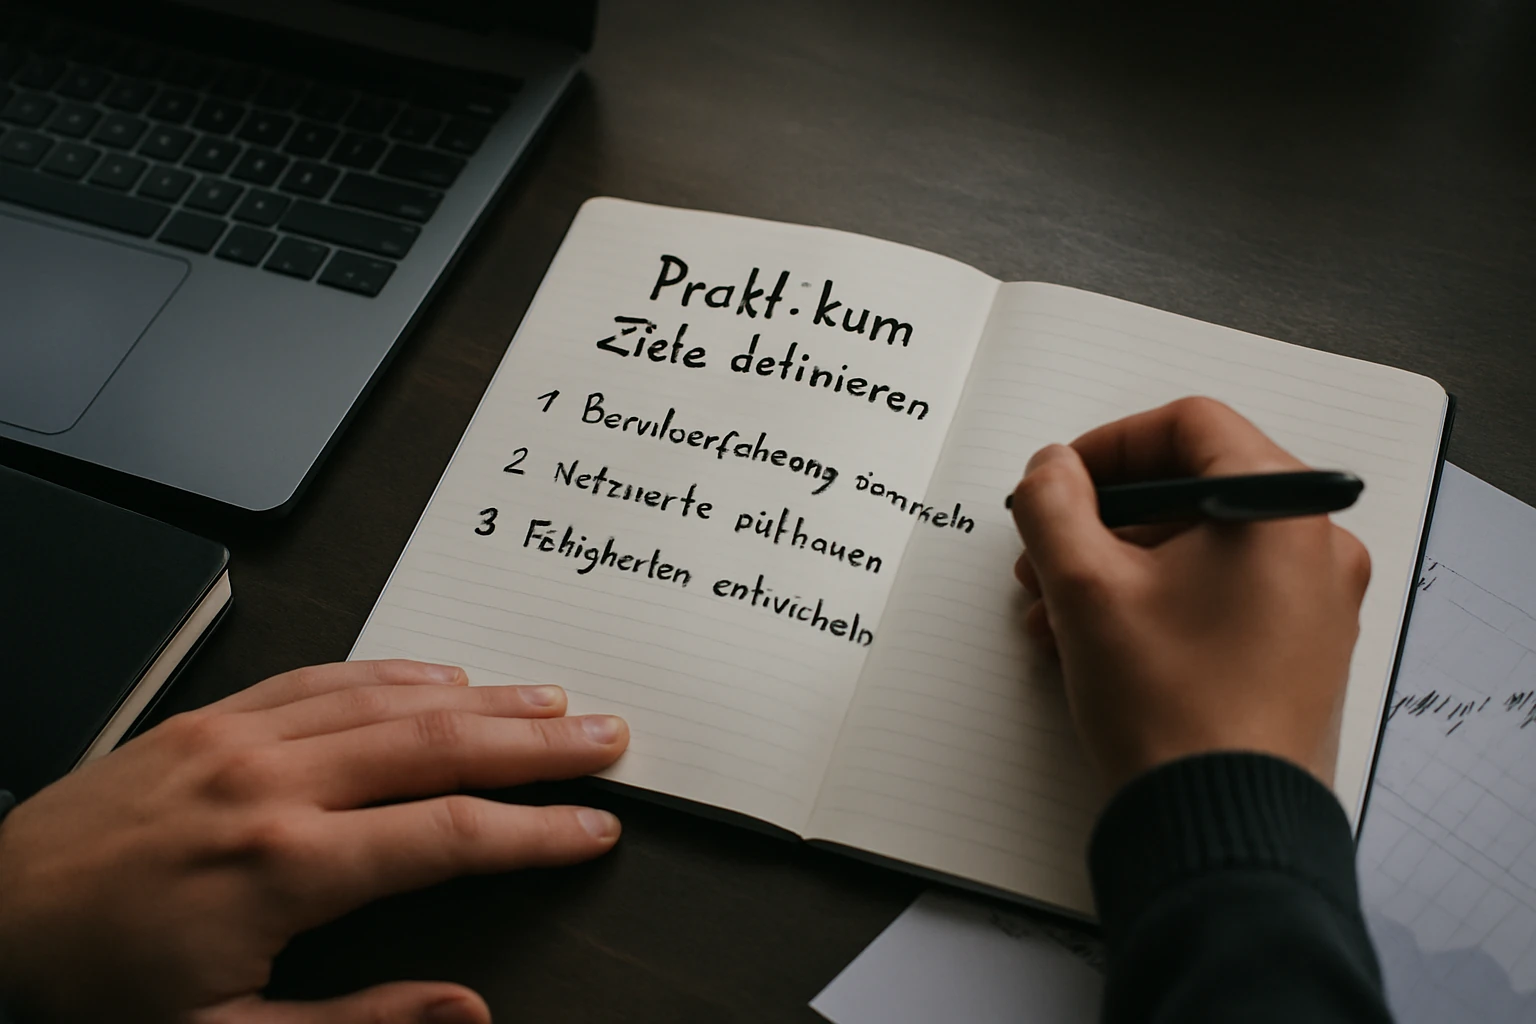 Prakt.kum
Ziele definieren
1 Berviloerfaheong dammeln
2 Netzıserte püfhauen
3 Fähigherten entivicheln